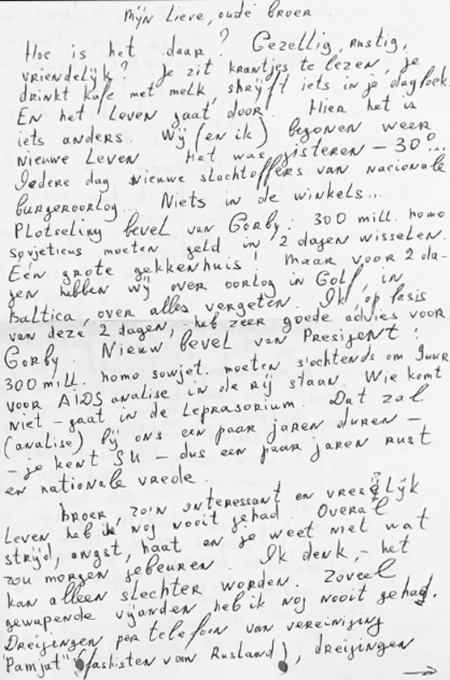 Mÿn Lieve, oude broer.
Hoe is het daar? Gezellig, rustig,
vriendelÿk? Je zit krantjes te lezen, je
drinkt kofe met melk, shrÿft iets in je dagboek.
En het Leven gaat door. Hier het is
iets anders. Wÿ (en ik) begonen weer
nieuwe Leven. Het was gisteren – 30°...
Iedere dag nieuwe slachtoffers van nacionale
burgeroorlog... Niets in de winkels...
Plotseling bevel van Gorby: 300 mill. homo
sovjeticus moeten geld in 2 dagen wisselen.
Eén grote gekkenhuis! Maar voor 2 da-
gen hebben wÿ over oorlog in Golf, in
Baltica, over alles vergeten. Ik, op basis
van deze 2 dagen, – heb zeer goede advies voor
Gorby. Nieuw bevel van President:
300 mill. homo sowjet. moeten s'ochtends om 9 uur
voor AIDS analise in de rÿ staan. Wie komt
niet – gaat in de Leprasorium. Dat zal
(analise) bÿ ons een paar jaren duren –
– je kent SU – dus een paar jaren rust
en nationale vrede.
Broer, zo'n interessant en vreselÿk
Leven heb ik nog nooit gehad. Overal
strÿd, angst, haat en je weet niet wat
zou morgen gebeuren. Ik denk, – het
kan alleen slechter worden. Zoveel
gewapende vÿanden heb ik nog nooit gehad.
Dreigingen per telefoon van vereiniging
"Pamjat" (fashisten vam Rusland), dreigingen
→